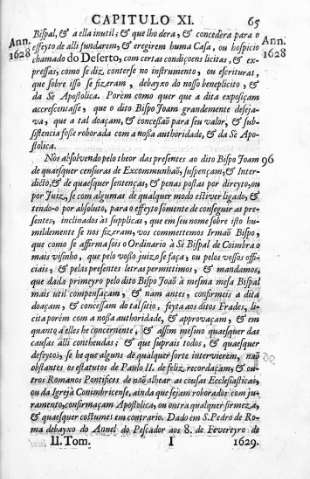 CAPITULO XI. 65
Ann. 1628
Ann. 1628
Bispal, & a ella inutil; & que lho dera, & concedera para o
effeyto de alli fundarem, & eregirem huma Casa, ou hospicio
chamado do Deserto, com certas condiçoens licitas, & ex-
pressas, como se diz, conterse no instrumento, ou escrituras,
que sobre isso se fizeram, debayxo do nosso beneplicito, &
da Sè Apostolica. Porèm como quer que a dita exposiçam
accrescentasse, que o dito Bispo Joam grandemente deseja-
va, que a tal doaçam, & concessaõ para seu valor, & sub-
sistencia fosse roborada com a nossa authoridade, & da Sè Apo-
stolica.
Nòs absolvendo pelo theor das presentes ao dito Bispo Joam 96
de quaesquer censuras de Excommunhaõ, suspençam, & Inter-
dicto, & de quaesquer sentenças, & penas postas por direyto, ou
por Juiz, se com algumas de qualquer modo estiver ligado, &
tendo-o por absoluto, para o effeyto somente de conseguir as pre-
sentes, inclinados às supplicas, que em seu nome sobre isto hu-
mildemente se nos fizeram, vos commettemos Irmaõ Bispo,
que como se affirma sois o Ordinario à Sè Bispal de Coimbra o
mais visinho, que pelo vosso juizo se faça, ou pelos vossos offi-
ciais, & pelas presentes letras permittimos, & mandamos,
que dada primeyro pelo dito Bispo Joaõ à mesma mesa Bispal
mais util compensaçam, & nam antes, confirmeis a dita
doaçam, & concessam do tal sitio, feyta aos ditos Frades, le-
cita porèm com a nossa authoridade, & approvaçam, & em
quanto a elles he concernente, & assim mesmo quaesquer das
causas alli contheudas; & que suprais todos, & quaesquer
defeytos, se he que alguns de qualquer sorte intervierem, naõ
obstantes os estatutos de Paulo II. de feliz recordaçam, & ou-
tros Romanos Pontifices de naõ alhear as cousas Ecclesiasticas,
ou da Igreja Conimbricense, ainda que sejam roborados com ju-
ramento, confirmaçam Apostolica, ou outra qualquer firmeza,
& quaesquer costumes em contrario. Dado em S. Pedro de Ro-
ma debayxo do Annel do Pescador aos 8. de Fevereyro de
II. Tom. I 1629.